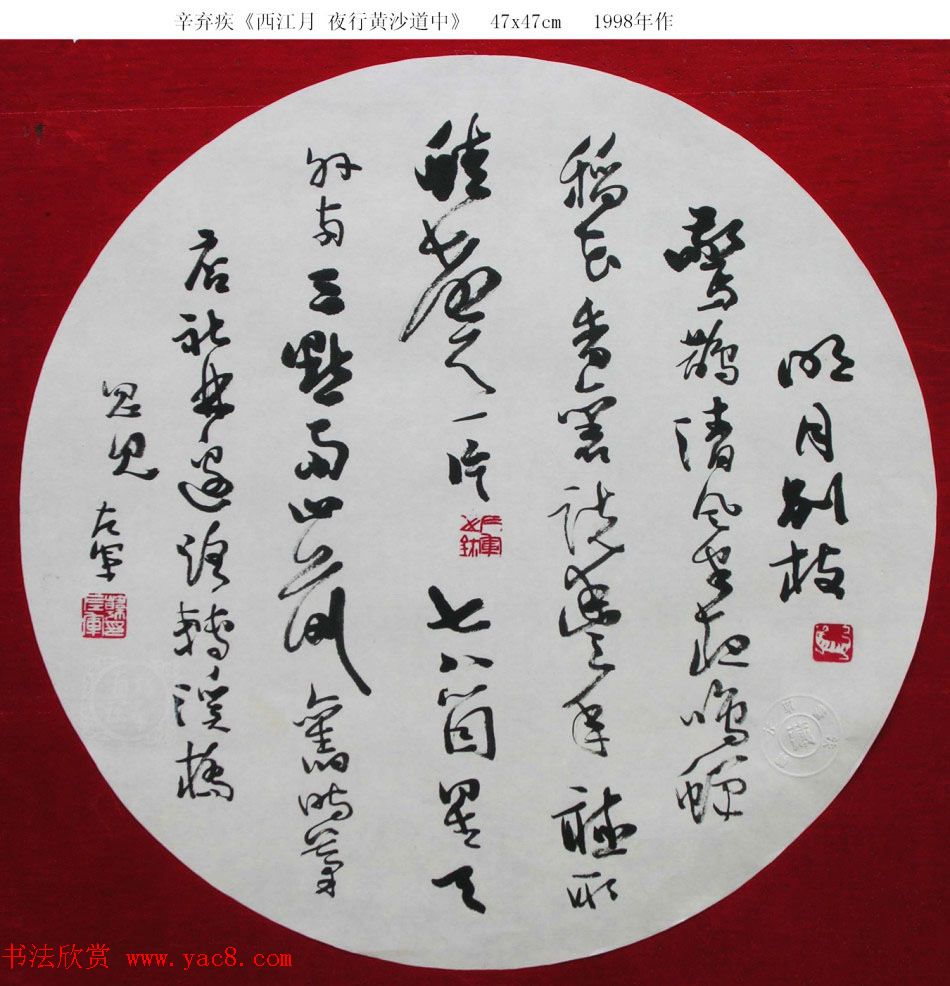 辛弃疾《西江月 夜行黄沙道中》 47x47cm 1998年作
明月别枝
驚鵲清风半夜鳴蟬
稻花香裏说豐年聽取
蛙聲一片七八箇星天
外两三點雨山前舊時茅
店社林邊路轉溪橋
忽見
左军
书法欣赏 www.yac8.com